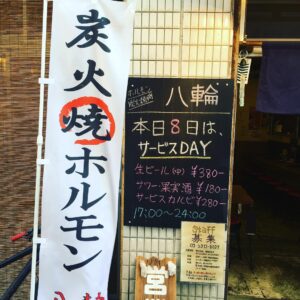 炭火焼ホルモン
八輪
本日8日は、
サービスDAY
生ビール(中)¥380-
サワー・果実酒¥180-
サービスカルビ¥280-
17:00〜24:00
Staff
募集
営